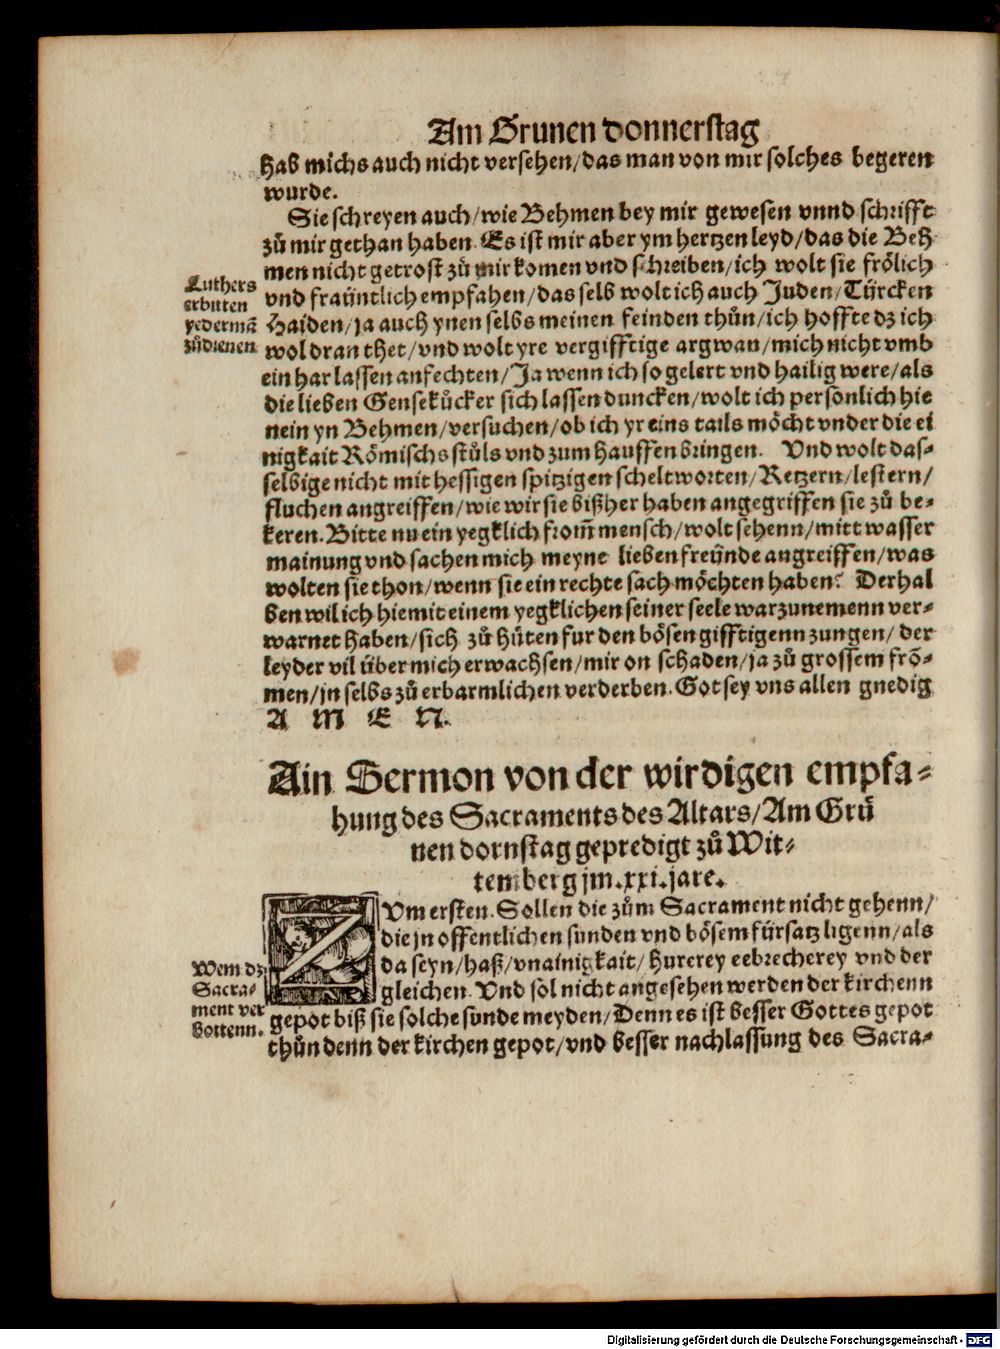 Am Grunen donnerstag
hab michs auch nicht versehen/das man von mir solches begeren
wurde.
Sie schreyen auch/wie Behmen bey mir gewesen vnnd schrifft
zů mir gethan haben. Es ist mir aber ym hertzen leyd/das die Beh
men nicht getrost zů mir komen vnd schreiben/ich wolt sie frőlich
vnd fraüntlich empfahen/das selb wolt ich auch Juden/Türcken
Haiden/ja auch ynen selbs meinen feinden thůn/ich hoffte dz ich
wol dran thet/vnd wolt yre vergifftige argwan/mich nicht vmb
ein har lassen anfechten/Ja wenn ich so gelert vnd hailig were/als
die lieben Gensekůcker sich lassen duncken/wolt ich persőnlich hie
nein yn Behmen/versuchen/ob ich yr eins tails mőcht vnder die ei
nigkait Rőmischs stůls vnd zum hauffen bringen. Vnd wolt das⸗
selbige nicht mit hessigen spitzigen scheltworten/Ketzern/lestern/
fluchen angreiffen/wie wir sie bißher haben angegriffen sie zů be⸗
keren. Bitte nu ein yegklich from̃ mensch/wolt sehenn/mitt wasser
mainung vnd sachen mich meyne lieben freünde angreiffen/was
wolten sie thon/wenn sie ein rechte sach mőchten haben? Derhal
ben wil ich hiemit einem yegklichen seiner seele warzunemenn ver⸗
warnet haben/sich zů hüten fur den bősen gifftigenn zungen/der
leyder vil über mich erwachsen/mir on schaden/ja zů grossem frő⸗
men/jn selbs zů erbarmlichen verderben. Got sey vns allen gnedig
A M E N.
Luthers
erbitten
yedermā
zůdienen
Ain Sermon von der wirdigen empfa⸗
hung des Sacraments des Altars/Am Grü
nen dornstag gepredigt zů Wit⸗
temberg jm.xxi.jare.
ZVm ersten. Sollen die zům Sacrament nicht gehenn/
die jn offentlichen sunden vnd bősem fürsatz ligenn/als
da seyn/haß/vnainigkait/hurerey eebrecherey vnd der
gleichen. Vnd sol nicht angesehen werden der kirchenn
gepot biß sie solche sunde meyden/Denn es ist besser Gottes gepot
thůn denn der kirchen gepot/vnd besser nachlassung des Sacra⸗
Wem dz
Sacra⸗
ment ver
bottenn.
Digitalisierung gefördert durch die Deutsche Forschungsgemeinschaft - DFG